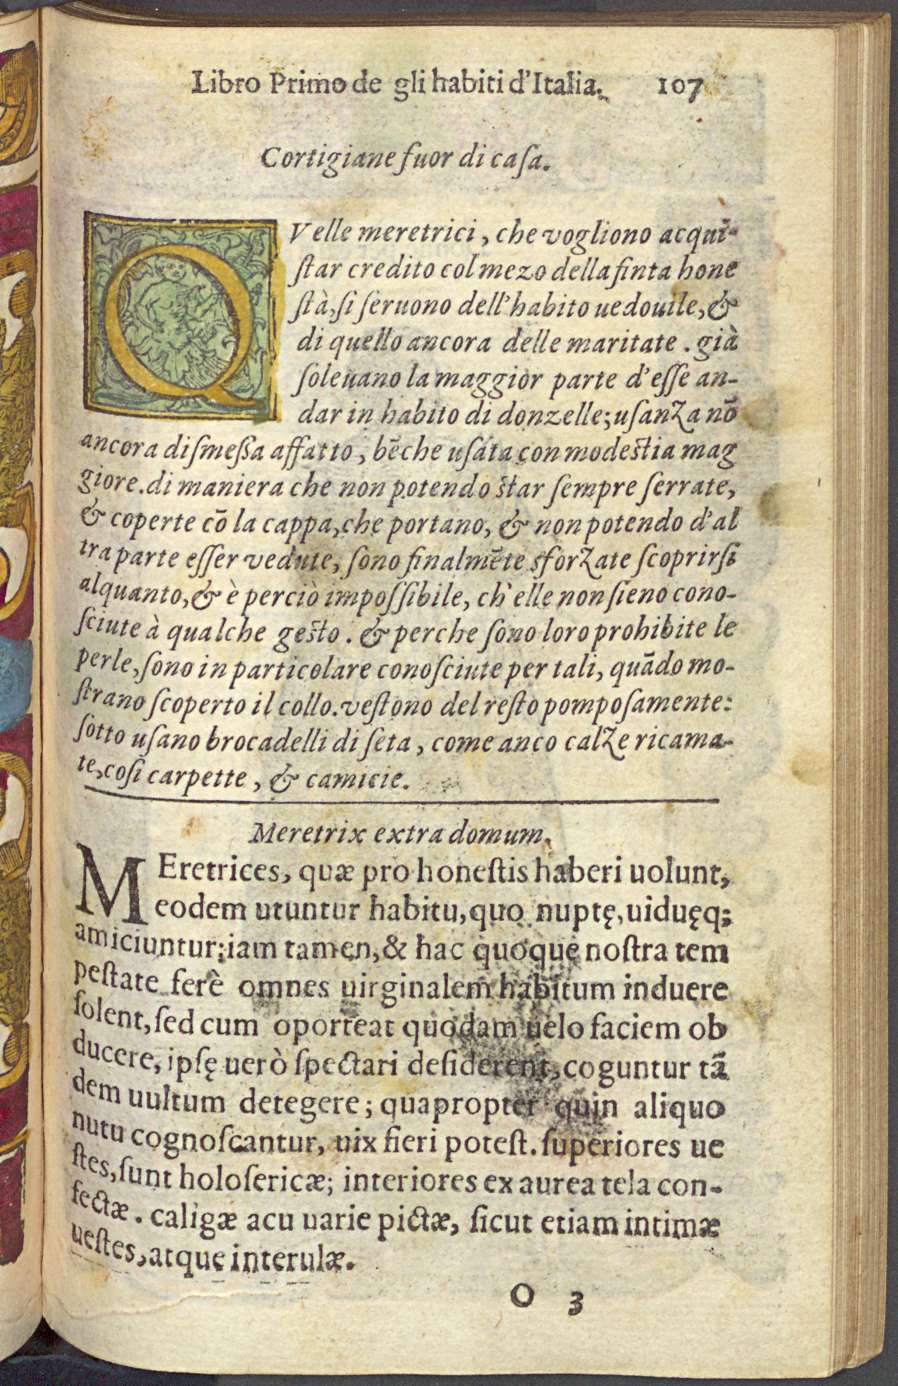 Libro Primo de gli habiti d'Italia. 107
Cortigiane fuor di casa.
QVelle meretrici, che vogliono acqui-
ſtar credito col mezo della finta hone
ſtà, ſi ſeruono dell'habito uedouile, &
di quello ancora delle maritate. già
ſoleuano la maggior parte d'eſſe an-
dar in habito di donzelle; uſanza nõ
ancora diſmeſſa affatto, bẽche uſata con modeſtia mag
giore. di maniera che non potendo ſtar ſempre ſerrate,
& coperte cõ la cappa, che portano, & non potendo d'al
tra parte eſſer vedute, ſono finalmẽte sforzate ſcoprirſi
alquanto, & è perciò impoſſibile, ch'elle non ſieno cono-
ſciute à qualche geſto. & perche ſono loro prohibite le
perle, ſono in particolare conoſciute per tali, quãdo mo-
ſtrano ſcoperto il collo. veſtono del reſto pompoſamente:
ſotto uſano brocadelli di ſeta, come anco calze ricama-
te, coſi carpette, & camicie.
Meretrix extra domum.
MEretrices, quæ pro honeſtis haberi uolunt,
eodem utuntur habitu, quo nuptę, uiduęq;
amiciuntur; iam tamen, & hac quoque noſtra tem
peſtate ferè omnes uirginalem habitum induere
ſolent, ſed cum oporteat quodam uelo faciem ob
ducere, ipſę uerò ſpectari deſiderent, coguntur tã
dem uultum detegere; quapropter quin aliquo
nutu cognoſcantur, uix fieri poteſt. ſuperiores ue
ſtes, ſunt holoſericæ; interiores ex aurea tela con-
fectæ. caligæ acu uarie pictæ, ſicut etiam intimæ
ueſtes, atque interulæ.
O 3